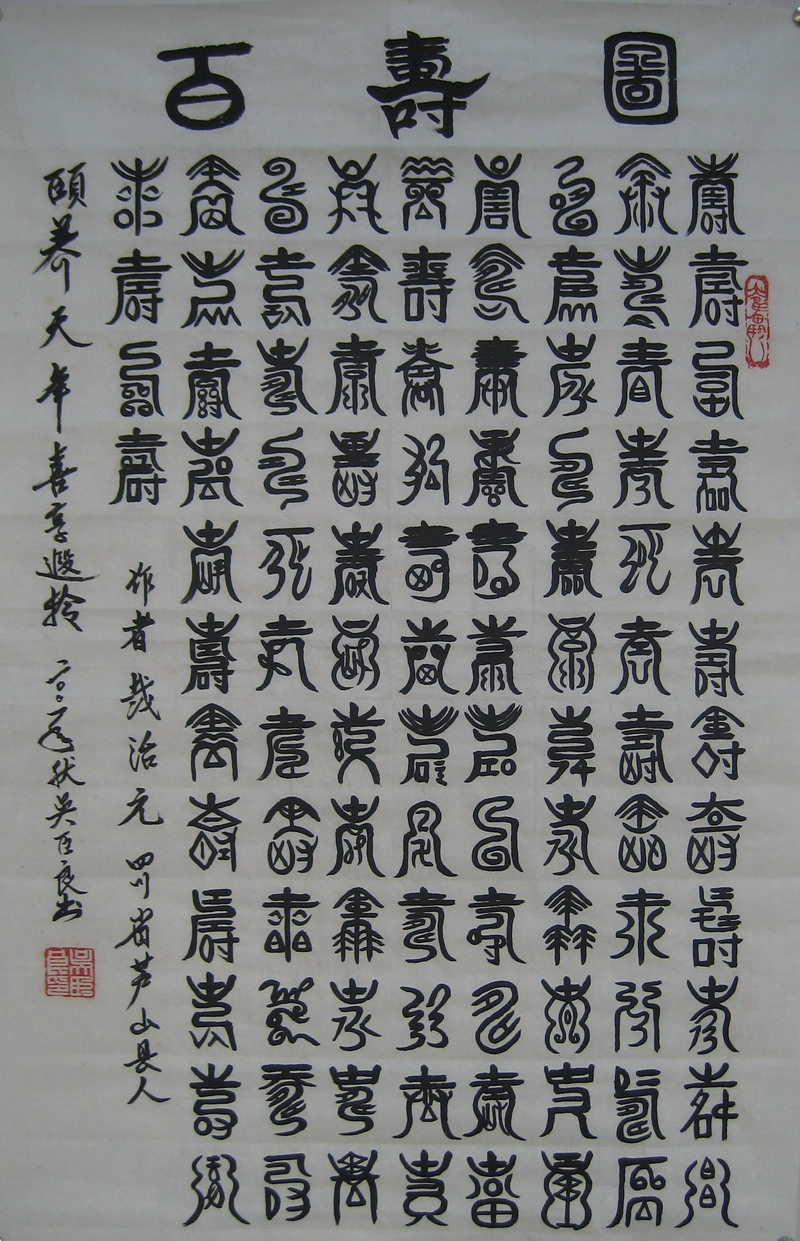 百壽圖
壽壽壽壽壽壽壽壽壽壽壽壽
壽壽壽壽壽壽壽壽壽壽壽壽
壽壽壽壽壽壽壽壽壽壽壽壽
壽壽壽壽壽壽壽壽壽壽壽壽
壽壽壽壽壽壽壽壽壽壽壽壽
壽壽壽壽壽壽壽壽壽壽壽壽
壽壽壽壽壽壽壽壽壽壽壽壽
壽壽壽壽壽壽壽壽壽壽壽壽
壽壽壽壽
作者治元 四川省芦山县人
頤养天年喜享遐龄 秋吴臣良书